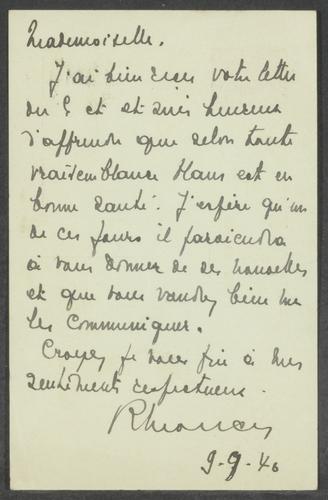 Mademoiselle.
J'ai bien reçu votre lettre
du 5 ct et suis heureux
d'apprendre que selon toute
vraisemblance Hans est en
bonne santé. J'espère qu'un
de ces jours il parviendra
à vous donner de ses nouvelles
et que vous voudrez bien me
les communiquer.
Croyez je vous prie à mes
sentiments respectueux.
9-9-40